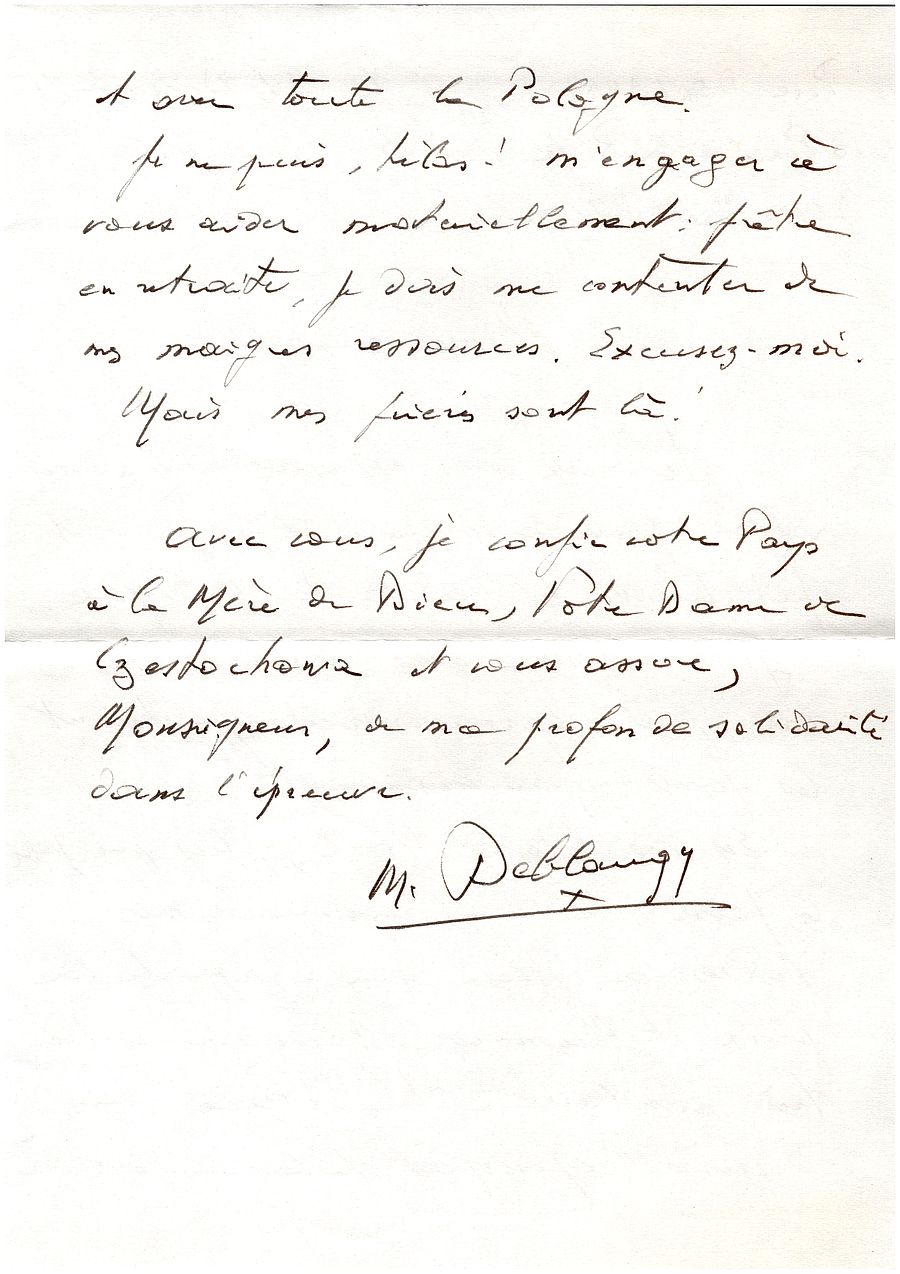 et avec toute la Pologne.
Je ne puis, hélas! m'engager à
vous aider matériellement: prêtre
en retraite, je dois me contenter de
mes maigres ressources. Excusez-moi.
Mais mes prières sont là!
Avec vous, je confie votre Pays
à la Mère de Dieu, Notre Dame de
Czestochowa et vous assure,
Monseigneur, de ma profonde solidarité
dans l'épreuve.
M. Deblangy